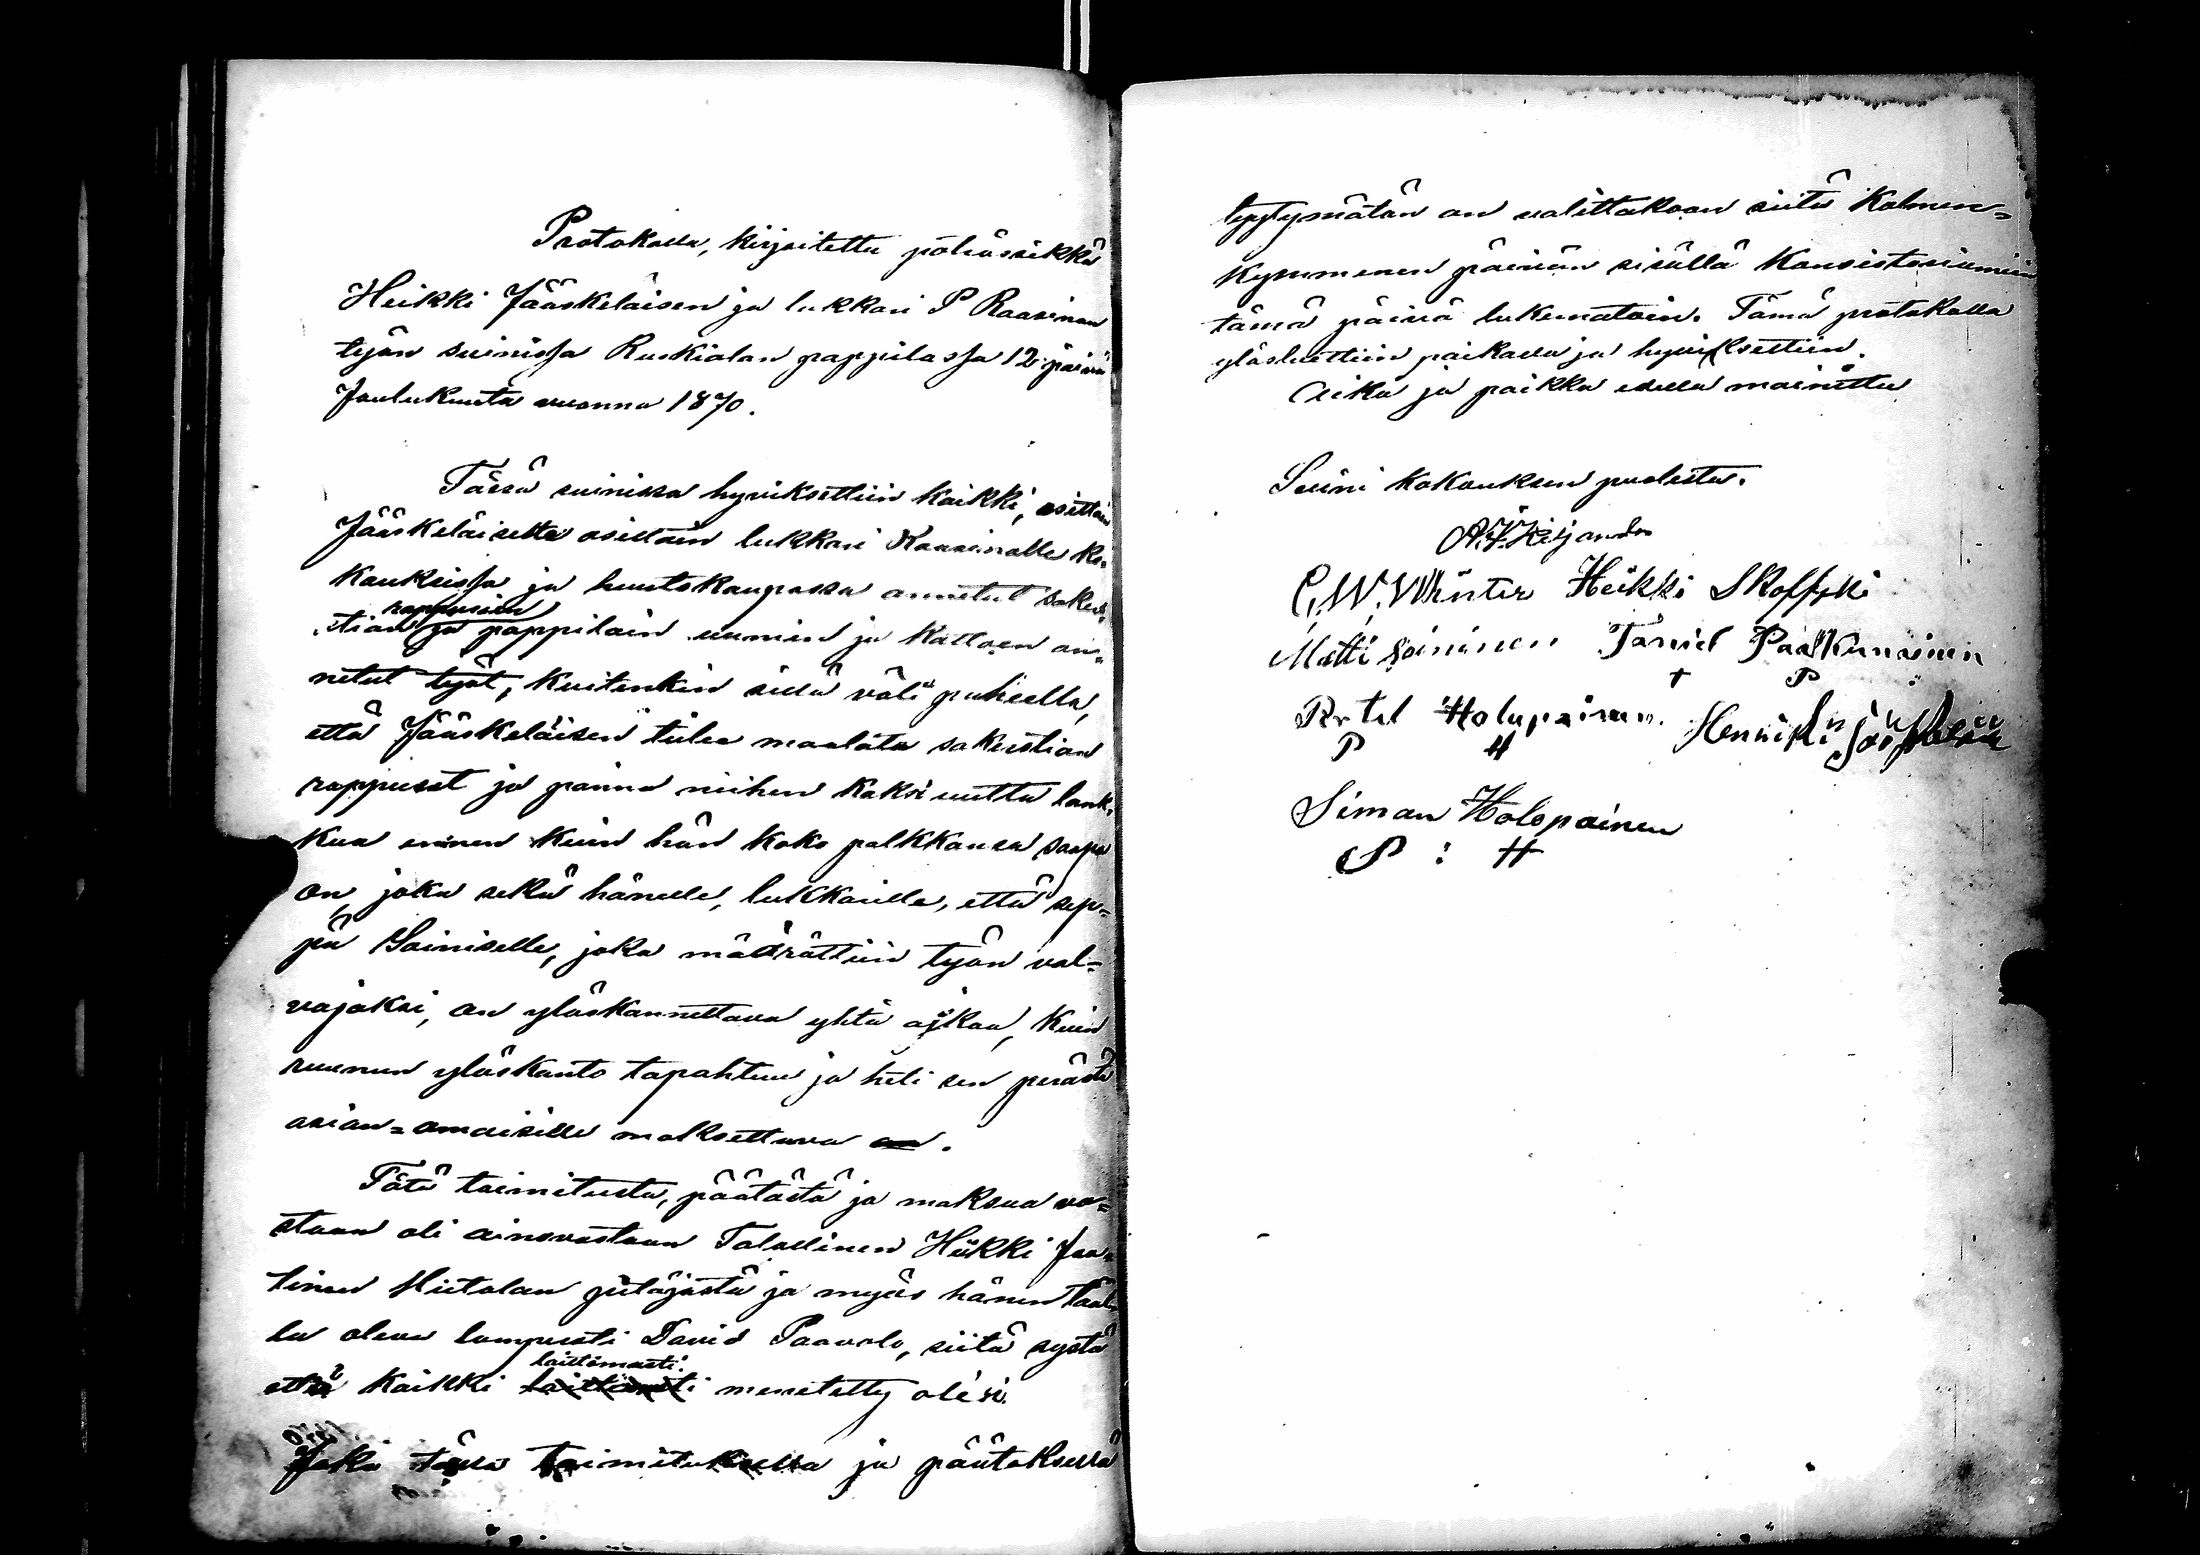 Protokolla, kirjoitettu pöliässikkä
Heikki Jääskeläisen ja lukkari P Raasinan
työn suinissa Ruskialan pappilassa 12 päivä
Joulukuuta vuonna 1870.
Tässä suinissa hyviksettiin kaikki, osittain
Jääskeläisette osittain lukkari Raasinalle ko-
kouksissa ja huutokaupassa annetut sakris-
tian rappusien ja pappilain uunien ja kattoen an-
netut työt, kuitenkin sillä väli puheella,
että Jääskeläisen tulee maalata sakristian
rappuset ja panna niihen kaksi uutta lank-
kua ennen kuin hän koko palkkansa saapa
on, joka sekä hänelle, lukkarille, että sep-
pä Soiniselle, joka määrättiin työn val-
vojaksi, on ylöskannettava yhtä aikaa, kuin
ruunun ylöskanto tapahtuu ja heti sen perästä
asian-omaisille maksettava on.
Tätä toimitusta, päätöstä ja maksua va-
staan oli ainovastaan Talollinen Heikki Jaa-
tinen Hiitolan pitäjästä ja myös hänen tääl-
lä oleva lampuoti David Paavola, siitä systä
että kaikki laittomasti menetetty olisi.
Joka tässä toimituksessa ja päätöksessä
tyytymätön on valittakoon siitä Kolmen-
kymmenen päivän sisällä Konsistoriumiin
tämä päivä lukematoin. Tämä protokolla
ylösluettiin paikalla ja hyviksettiin.
Aika ja paikka edellä mainittu
Suini kokouksen puolesta.
C. W. Winter Heikki Skoffski
Matti Soininen Taniel Paakkunainen
T P
Holopainen. Henriki Jääskeläin
P H
Siman Holopainen
S : H